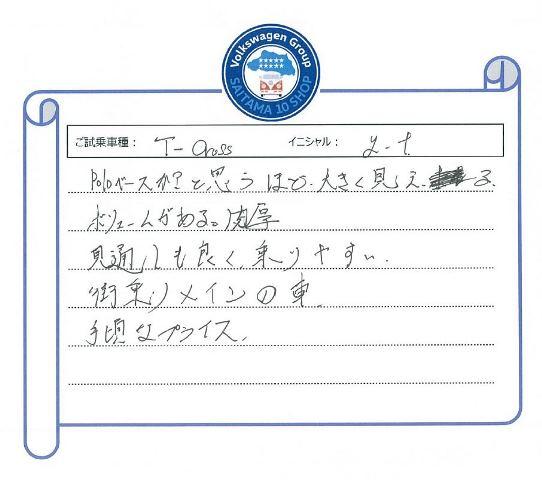 Volkswagen Group
SAITAMA 10 SHOP
ご試乗車種： T-Cross イニシャル： y-t.
Poloベースか？と思うほど、大きく見える。
ボリュームがある。肉厚
見通しも良く、乗りやすい。
街乗りメインの車。
手頃なプライス。